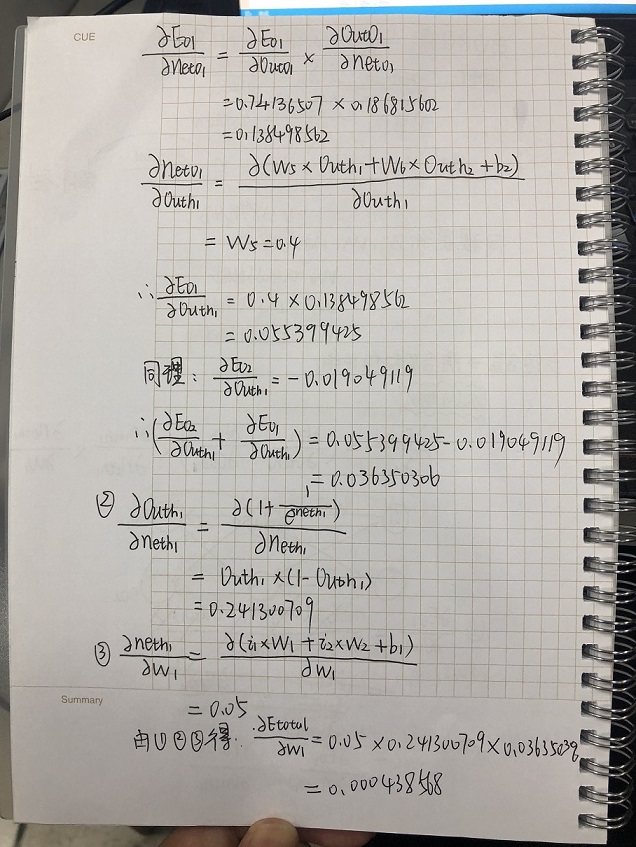 CUE
∂Eo1/∂neto1 = ∂Eo1/∂Outo1 × ∂OutO1/∂neto1
=0.74136507 × 0.186815602
=0.138498562
∂neto1/∂Outh1 = ∂(W5 × Outh1+W6 × Outh2+b2)/∂Outh1
= W5 =0.4
∴ ∂Eo1/∂Outh1 = 0.4 × 0.138498562
= 0.055399425
同理: ∂Eo2/∂Outh1 = -0.019049119
∴(∂Eo2/∂Outh1 + ∂Eo1/∂Outh1) = 0.055399425-0.019049119
= 0.036350306
② ∂Outh1/∂neth1 = ∂(1+ 1/e^neth1)/∂neth1
= Outh1 ×(1-Outh1)
=0.241300709
③ ∂neth1/∂W1 = ∂(i1×W1+i2×W2+b1)/∂W1
Summary
= 0.05
由①②③得: ∂Etotal/∂W1 = 0.05 ×0.241300709×0.03635030
= 0.000438568